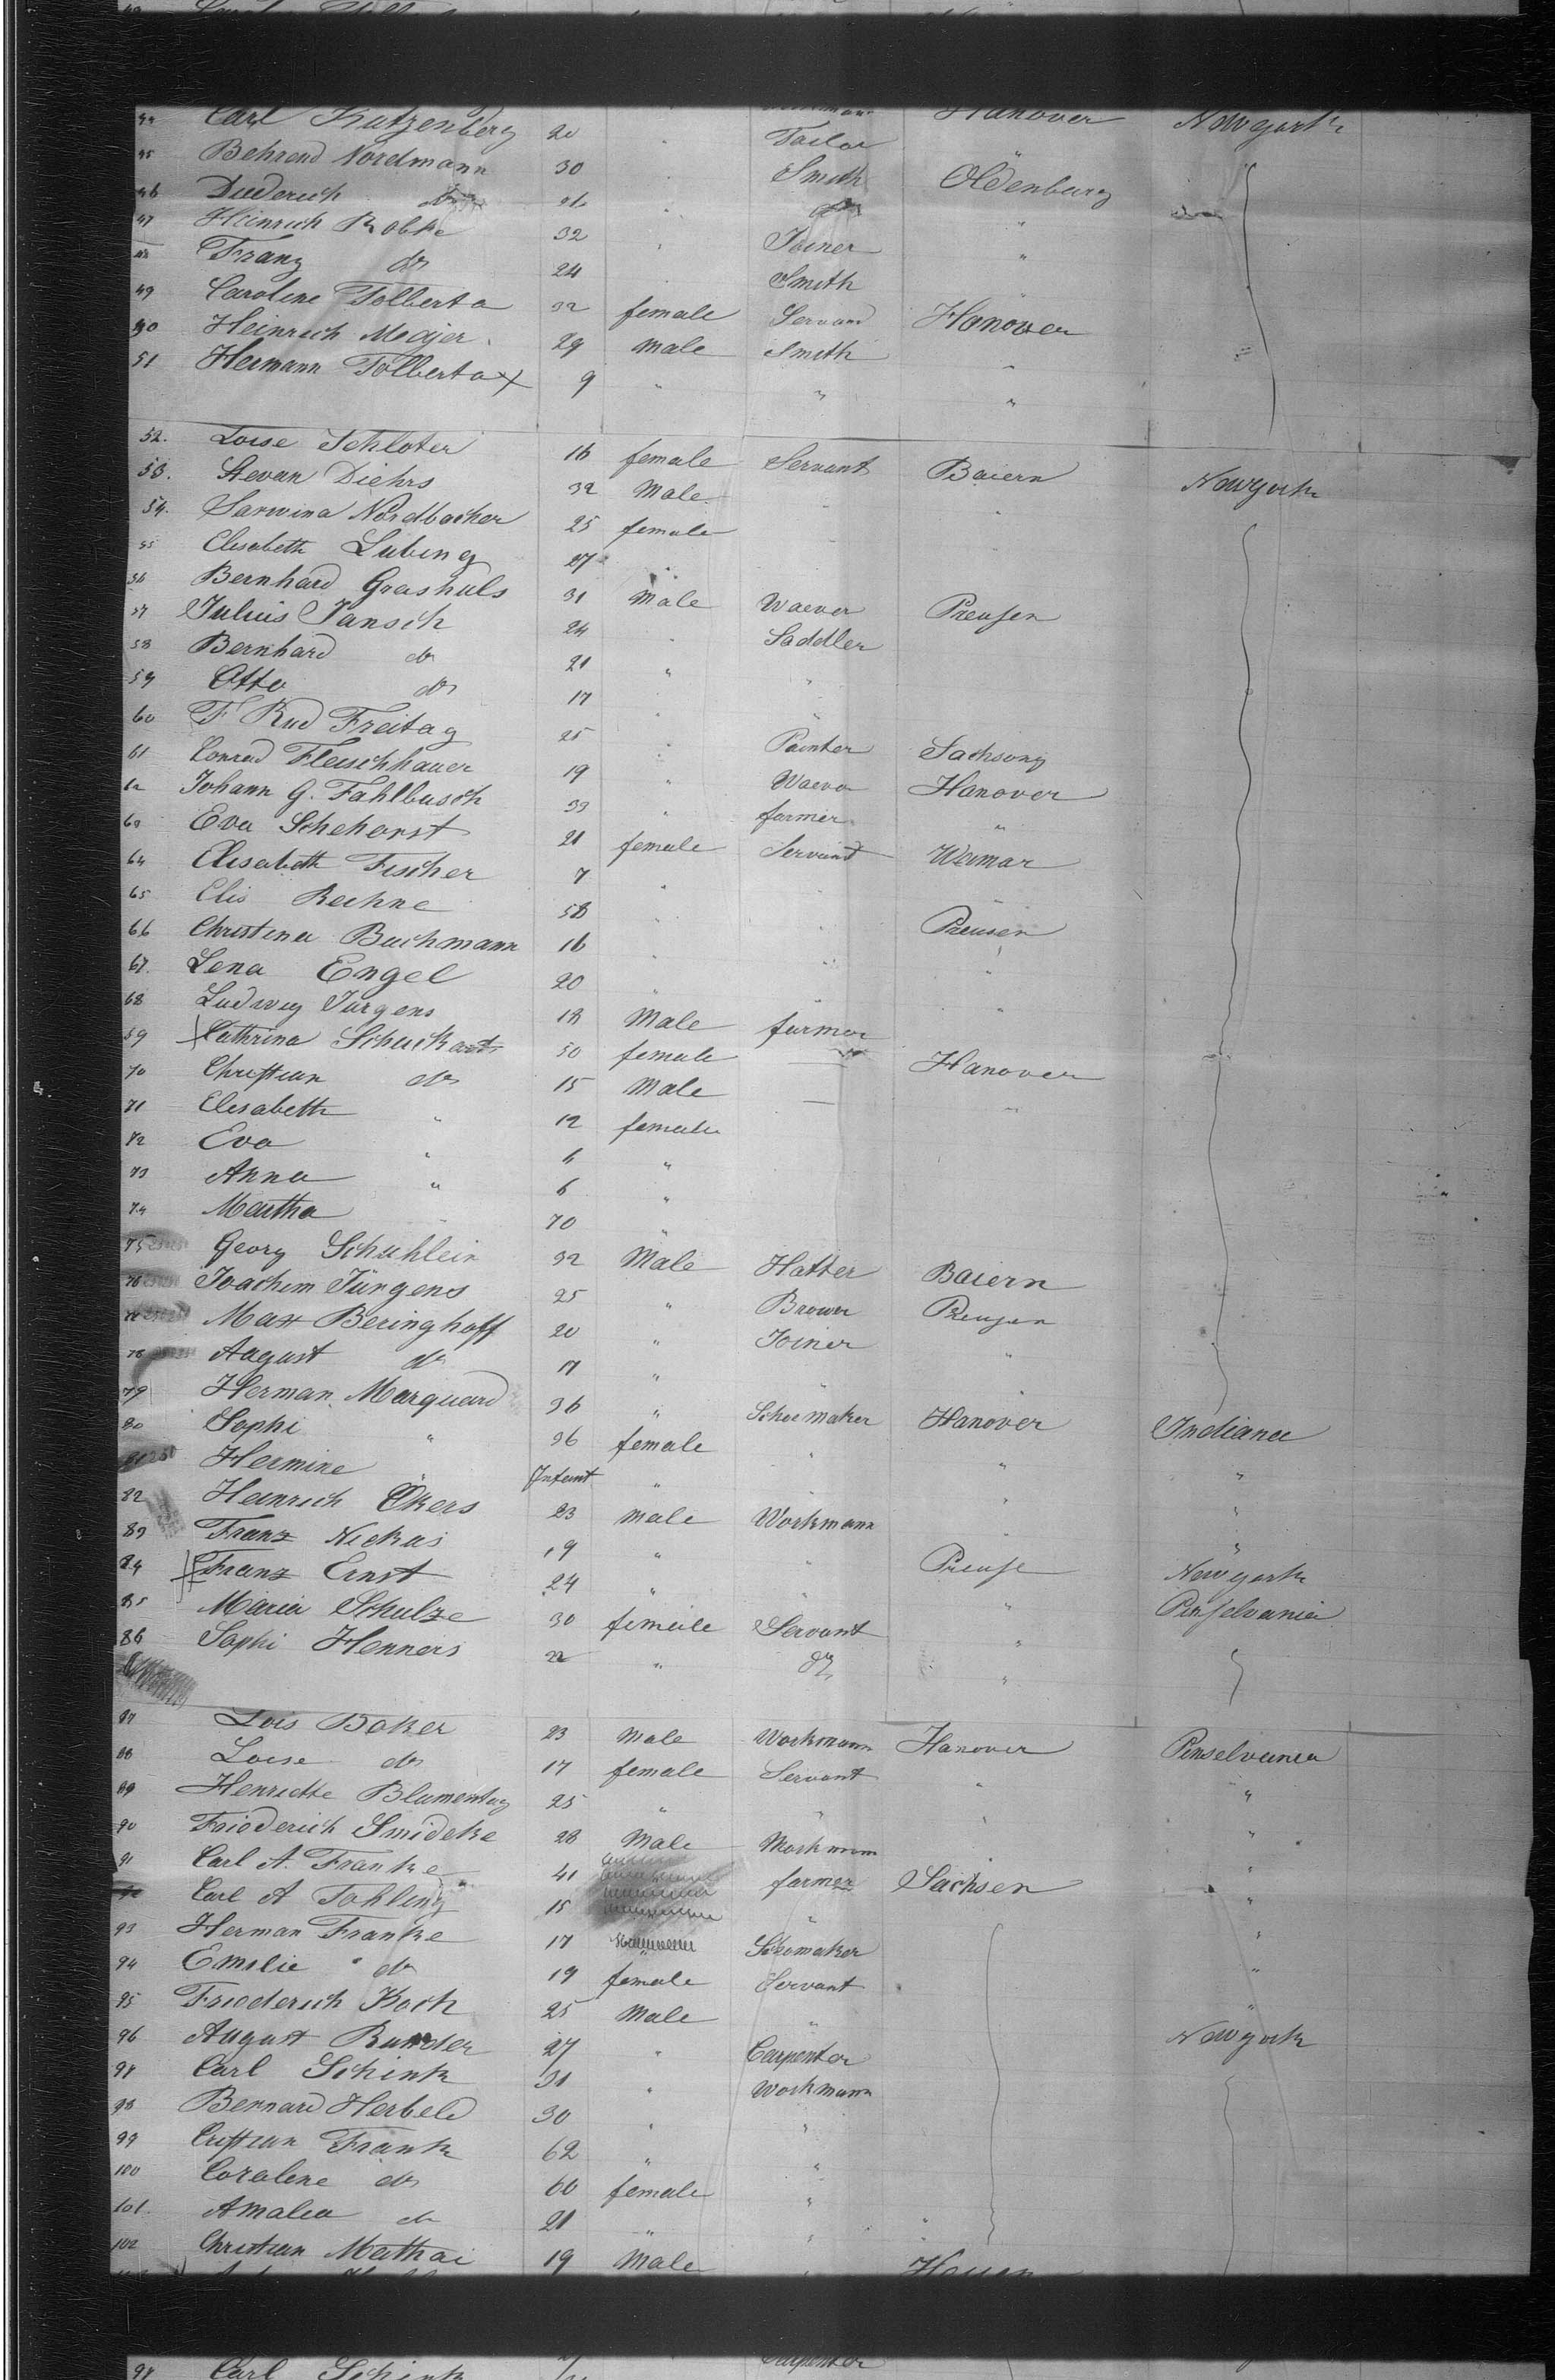 44 Carl Kutzenberg 20 " Tailor Hanover Newyork
45 Behrend Nordmann 30 " Smith Oldenburg
46 Diederich do " do "
47 Heinrich Robke 32 " Joiner "
48 Franz do 24 Smith "
49 Caroline Tolberta 32 female Servand Hanover
50 Heinrich Meajer 29 Male Smith "
51 Hermann Tolberta 9 " " "
52. Loise Schloter 16 female Servant Baiern Newyork
53. Stevan Diehrs 32 Male " "
54. Sarwina Nordbacher 25 female
55 Elisabeth Lubing 27 "
56 Bernhard Grashuls 31 Male Waever Preusen
57 Julius Jansch 24 " Saddler
58 Bernhard do 21 " "
59 Otto do 17 " "
60 F Rud Freitag 25 " Painter Sachsony
61 Conrad Fleischhauer 19 " Waever Hanover
62 Johann G. Fahlbusch 33 " farmer "
63 Eva Schehorst 21 female Servant Weimar
64 Elisabeth Fischer 7 " "
65 Elis Rechne 58 " " Preusen
66 Christina Buchmann 16 " " "
67. Lena Engel 20 " "
68 Ludwig Jurgens 18 Male farmer
59 Cathrina Schuckardt 50 female — Hanover
70 Christian do 15 Male — "
71 Elisabeth " 12 female
72 Eva " "
73 Anna " 6 "
74 Martha 70 "
75 Georg Schuhlein 32 Male Hatter Baiern
76 Joachim Jürgens 25 " Brower Preusen
77 Max Beringhoff 20 " Joiner "
78 August do 17 " "
79 Herman Marquard 36 " Schoemaker Hanover Indiana
80 Sophi " 36 female " " "
81 Hermine " Infant " " "
82 Heinrich Okers 23 male Workmann " "
83 Franz Nickas 19 " " Preuse Newyork
84 Franz Ernst 24 " " Penselvania
85 Maria Schulze 30 female Servant "
86 Sophi Henners 22 " do "
87 Lois Baker 23 Male Workmann Hanover Penselvania
88 Loise do 17 female Servant " "
89 Henriette Blumentag 25 " " " "
90 Friederich Smideke 28 Male Workmann " "
91 Carl A. Franke 41 farmer Sachsen "
Carl A Tohling 15 " "
93 Herman Franke 17 Schomaker "
94 Emilie do 19 female Servant "
95 Friederich Koch 25 Male " Newyork
96 August 27 " Carpenter
97 Carl Schink 31 " Workmann
98 Bernard Herbeld 30 " "
99 Cristian Frank 62 " "
100 Coraline do 60 female "
101. Amalia do 21 " " "
102 Christian Mathai 19 Male "
98 Carl Schink Carpenter